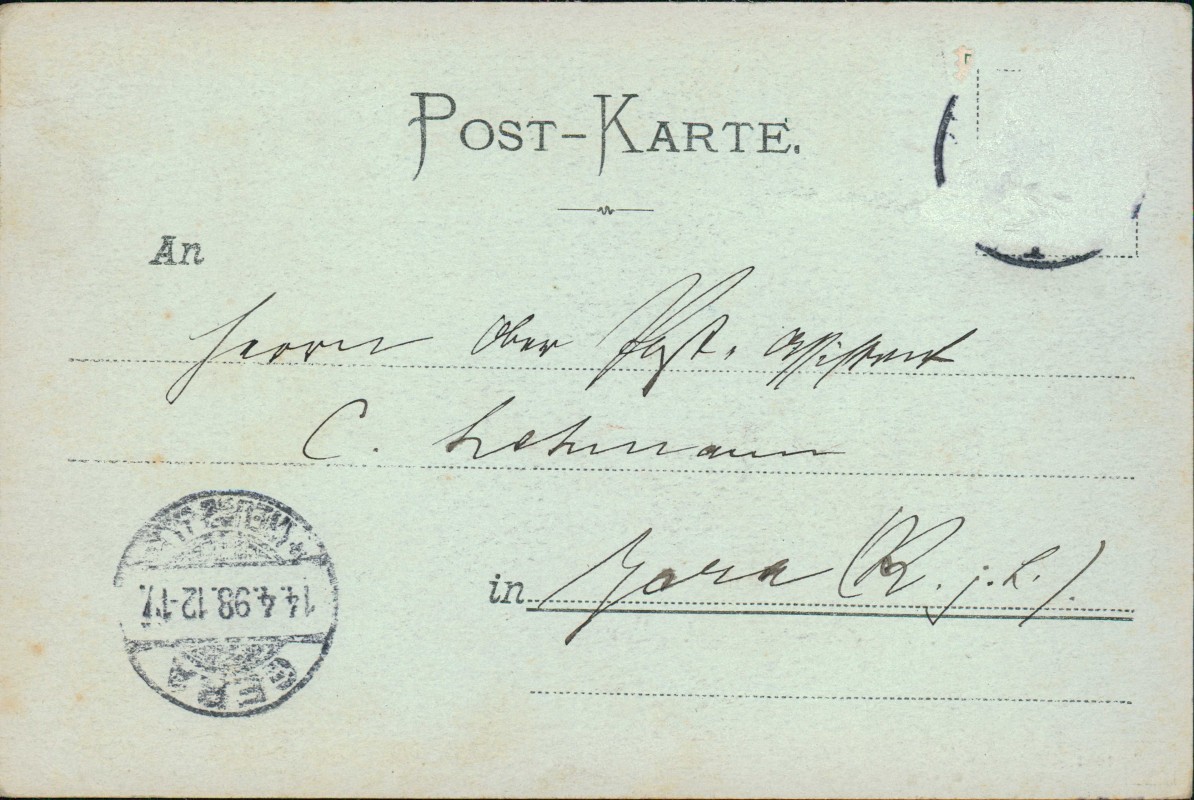 POST-KARTE.
An
Herrn Ober Post. Assistent
C. Lehmann
in Gera (R. j. L.)
14.4.98.12-1N.
GERA